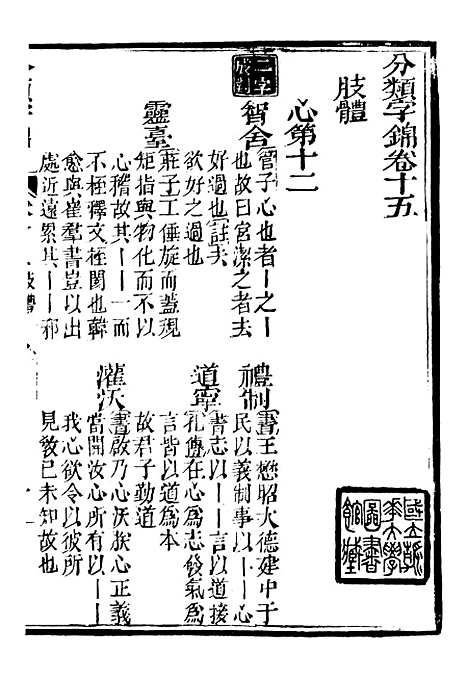 分類字錦卷十五
肢體
心第十二
二字
成對
智舍
管子心也者｜之｜
也故曰宮潔之者去
好過也註夫
欲好之過也
靈臺
莊子工倕旋而蓋規
矩指與物化而不以
心稽故其｜｜一而
不桎釋文桎閡也韓
愈與崔羣書豈以出
處近遠累其｜｜邪
禮制
書王懋昭大德建中于
民以義制事以｜｜心
道寧
書志以｜｜言以道接
孔傳在心爲志發氣爲
言皆以道爲本
故君子勤道
灌沃
書啟乃心沃朕心正義
當開汝心所有以｜｜
我心欲令以彼所
見教已未知故也
國立
清華大學
圖書
館藏